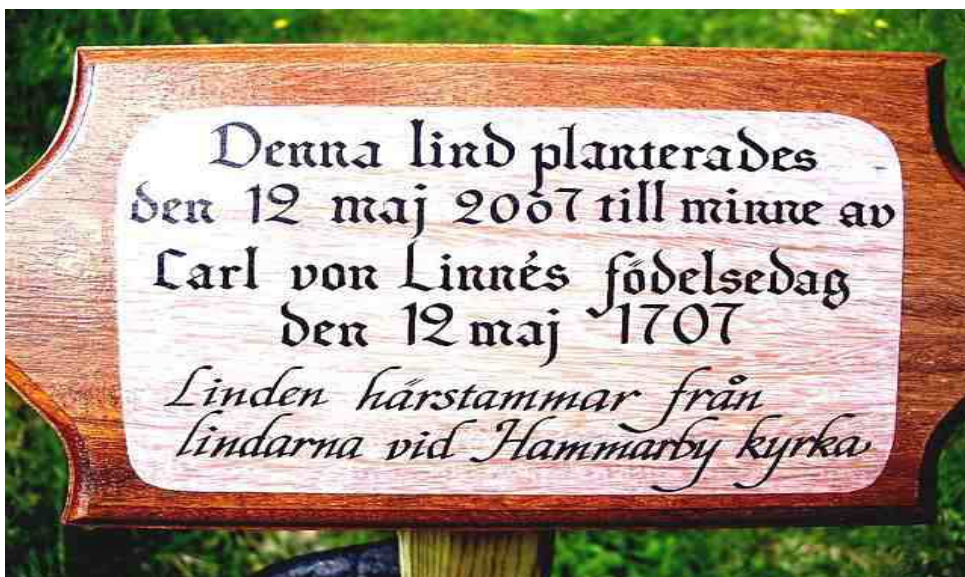 Denna lind planterades
den 12 maj 2007 till minne av
Carl von Linnés födelsedag
den 12 maj 1707
Linden härstammar från
lindarna vid Hammarby kyrka